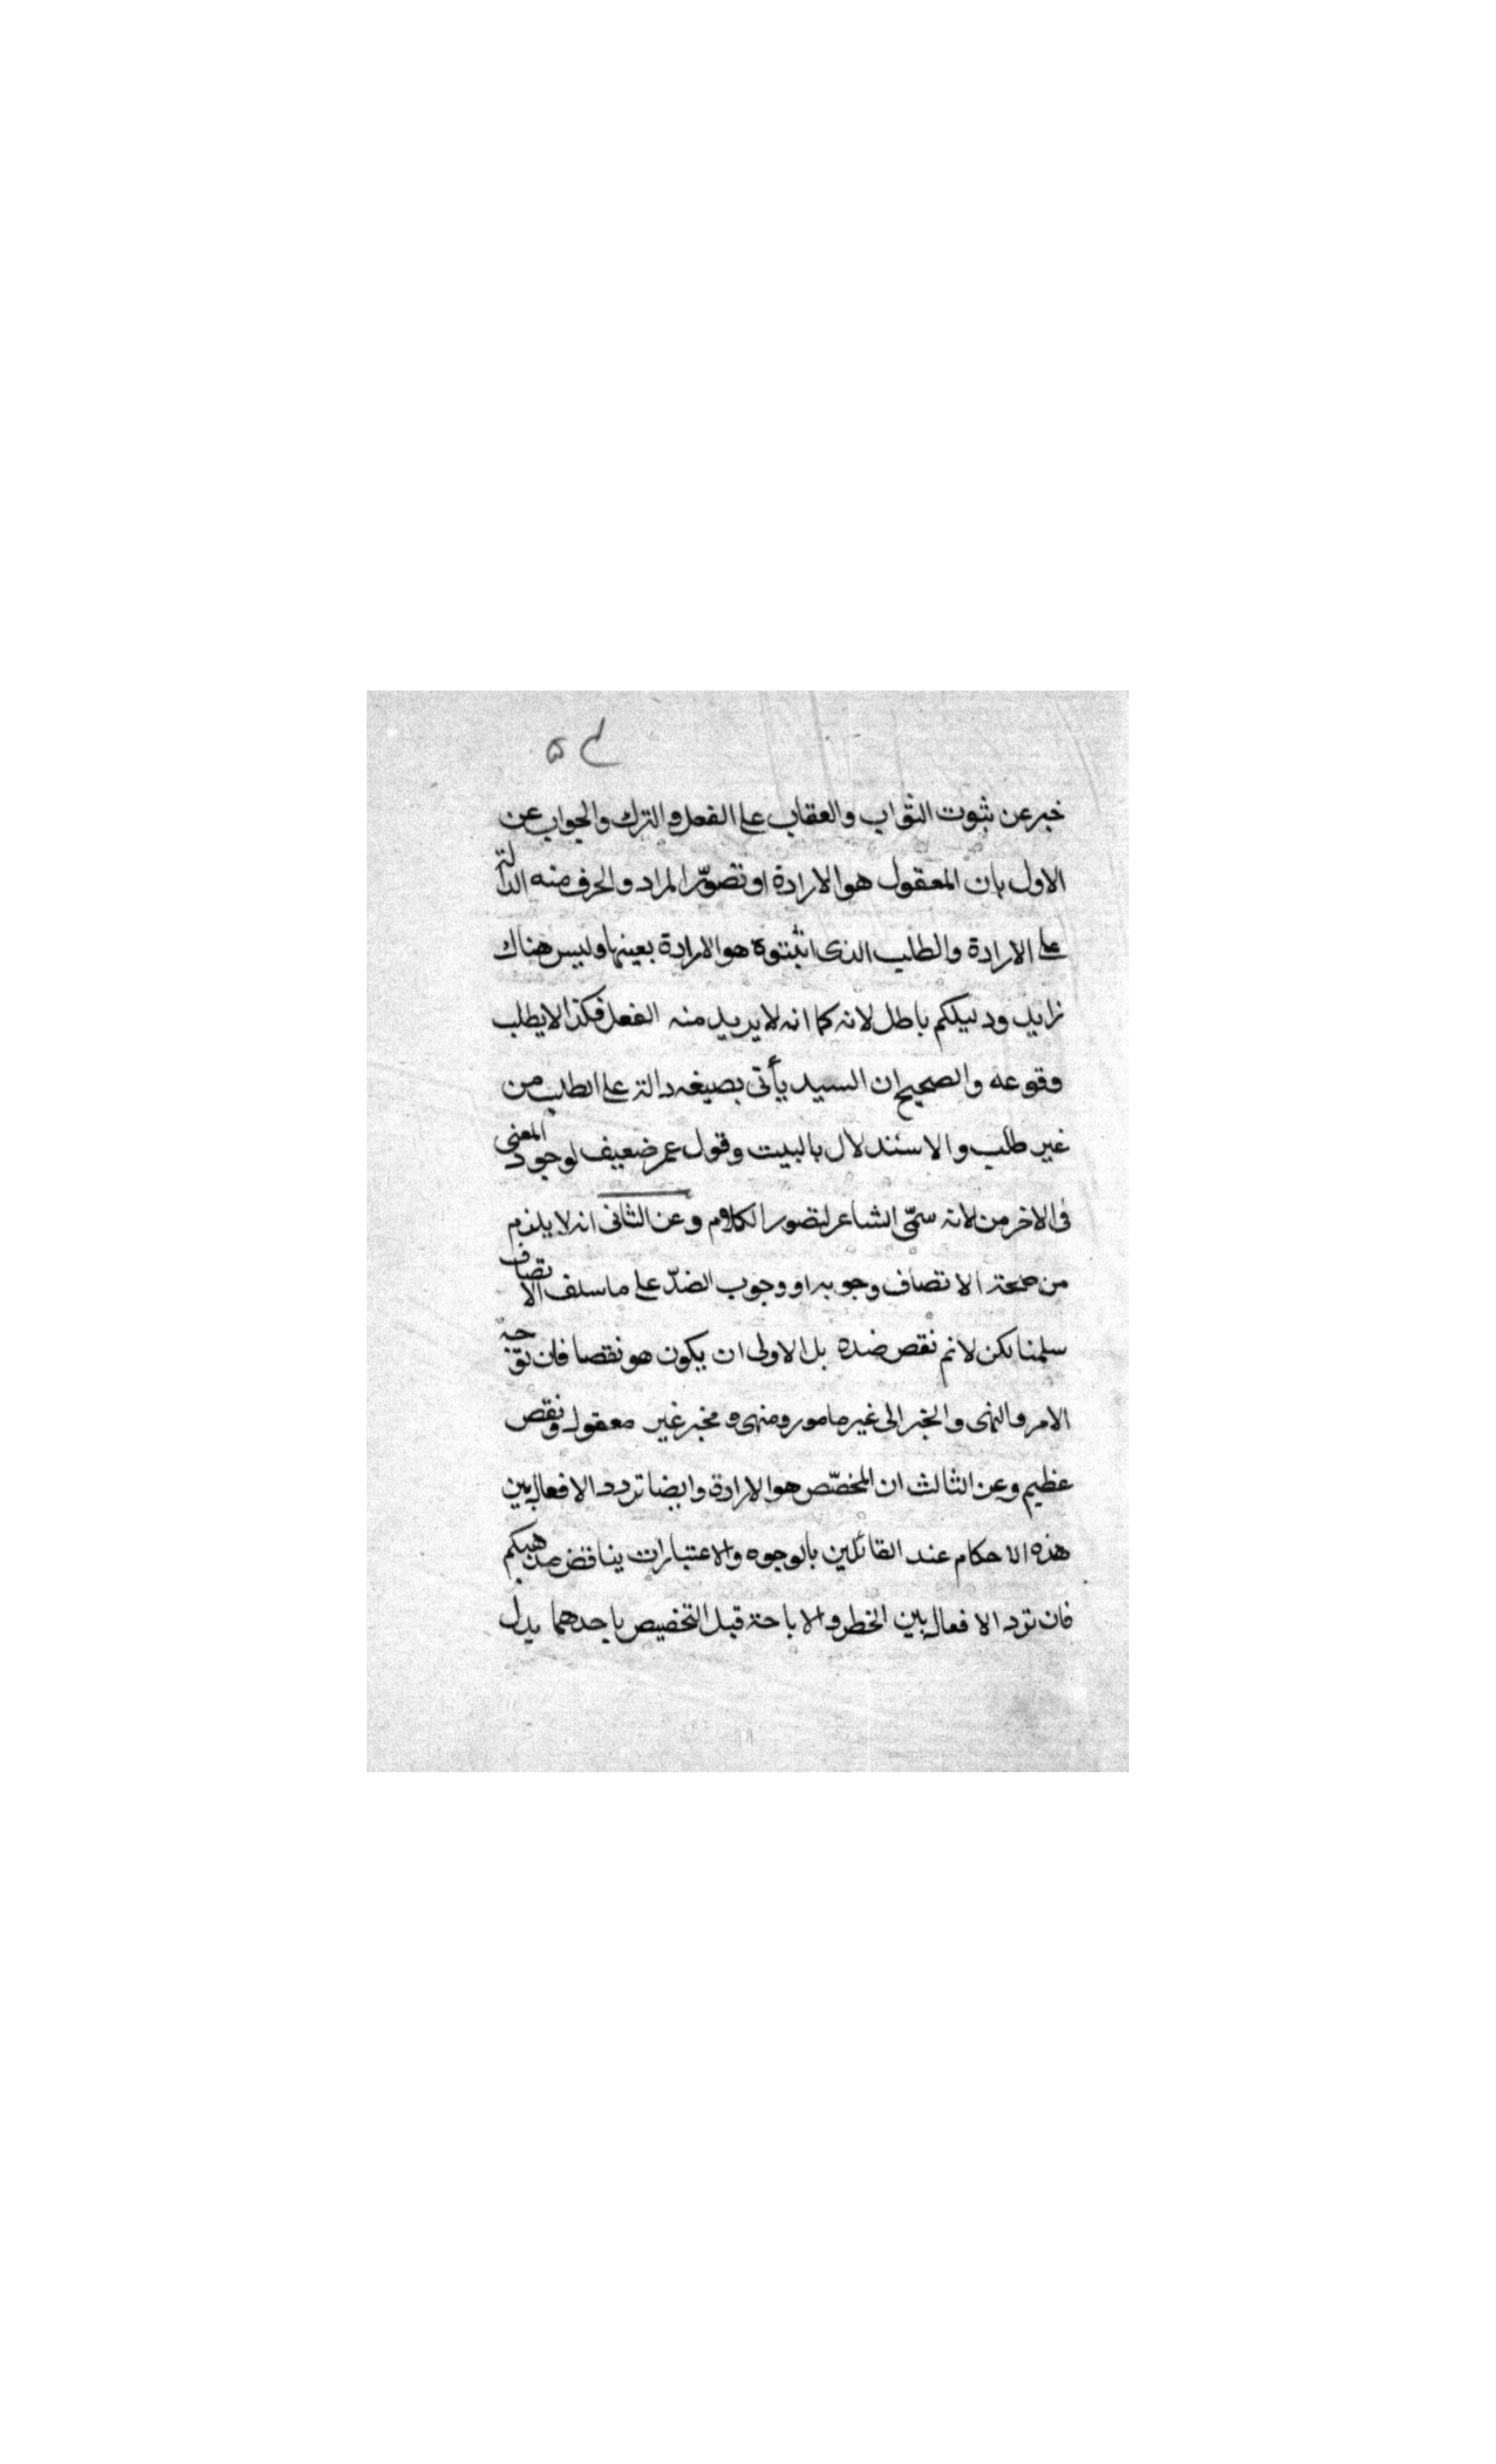 خبر عن ثبوت الثواب والعقاب على الفعل والترك والجواب عن
الاول بان المعقول هو الارادة او تصوّر المراد والحرف منه الدالة
على الارادة والطلب الذى اثبتوه هو الارادة بعينها وليس هناك
زايد ودليلكم باطل لانه كما انه لا يريد منه الفعل فكذا لا يطلب
وقوعه والصحيح ان السيد يأتى بصيغه دالة على الطلب من
غير طلب والاستدلال بالبيت وقول عمر ضعيف لوجود المعنى
فى الاخرمن لانه سمّى الشاعر لتصور الكلام وعن الثانى انه لا يلزم
من صحة الاتصاف وجوبه او وجوب الضدّ على ما سلف الاتصاف
سلمنا لكن لانم نقص ضده بل الاولى ان يكون هو نقصا فان توجه
الامر والنهى والخبر الى غير مامور ومنهى ومخبر غير معقول ونقص
عظيم وعن الثالث ان المخصّص هو الارادة وايضا تردد الافعال بين
هذه الاحكام عند القائلين بالوجوه والاعتبارات يناقض مذهبكم
فان تردد الافعال بين الخطر والاباحة قبل التخصيص باحدهما يدل